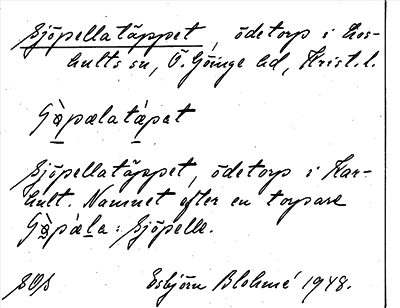 Sjöpellatäppet, ödetorp i Los-
hults sn, Ö. Göinge hd, Krist. l.
Gö̀pælatápət
Sjöpellatäppet, ödetorp i Har-
hult. Namnet efter en torpare
Gö̀pæ̀la: Sjöpelle.
Esbjörn Blohmé 1948.